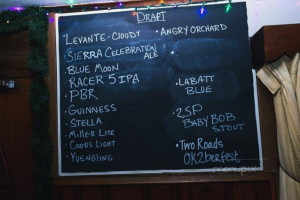 DRAFT
LEVANTE - CLOUDY
SIERRA CELEBRATION ALE!
BLUE MOON
RACER 5 IPA
PBR
GUINNESS
STELLA
MILLER LITE
COORS LIGHT
YUENGLING
• ANGRY ORCHARD
• LABATT
BLUE
• 2SP
BABY BOB
STOUT
• TWO ROADS
OK2BERFEST